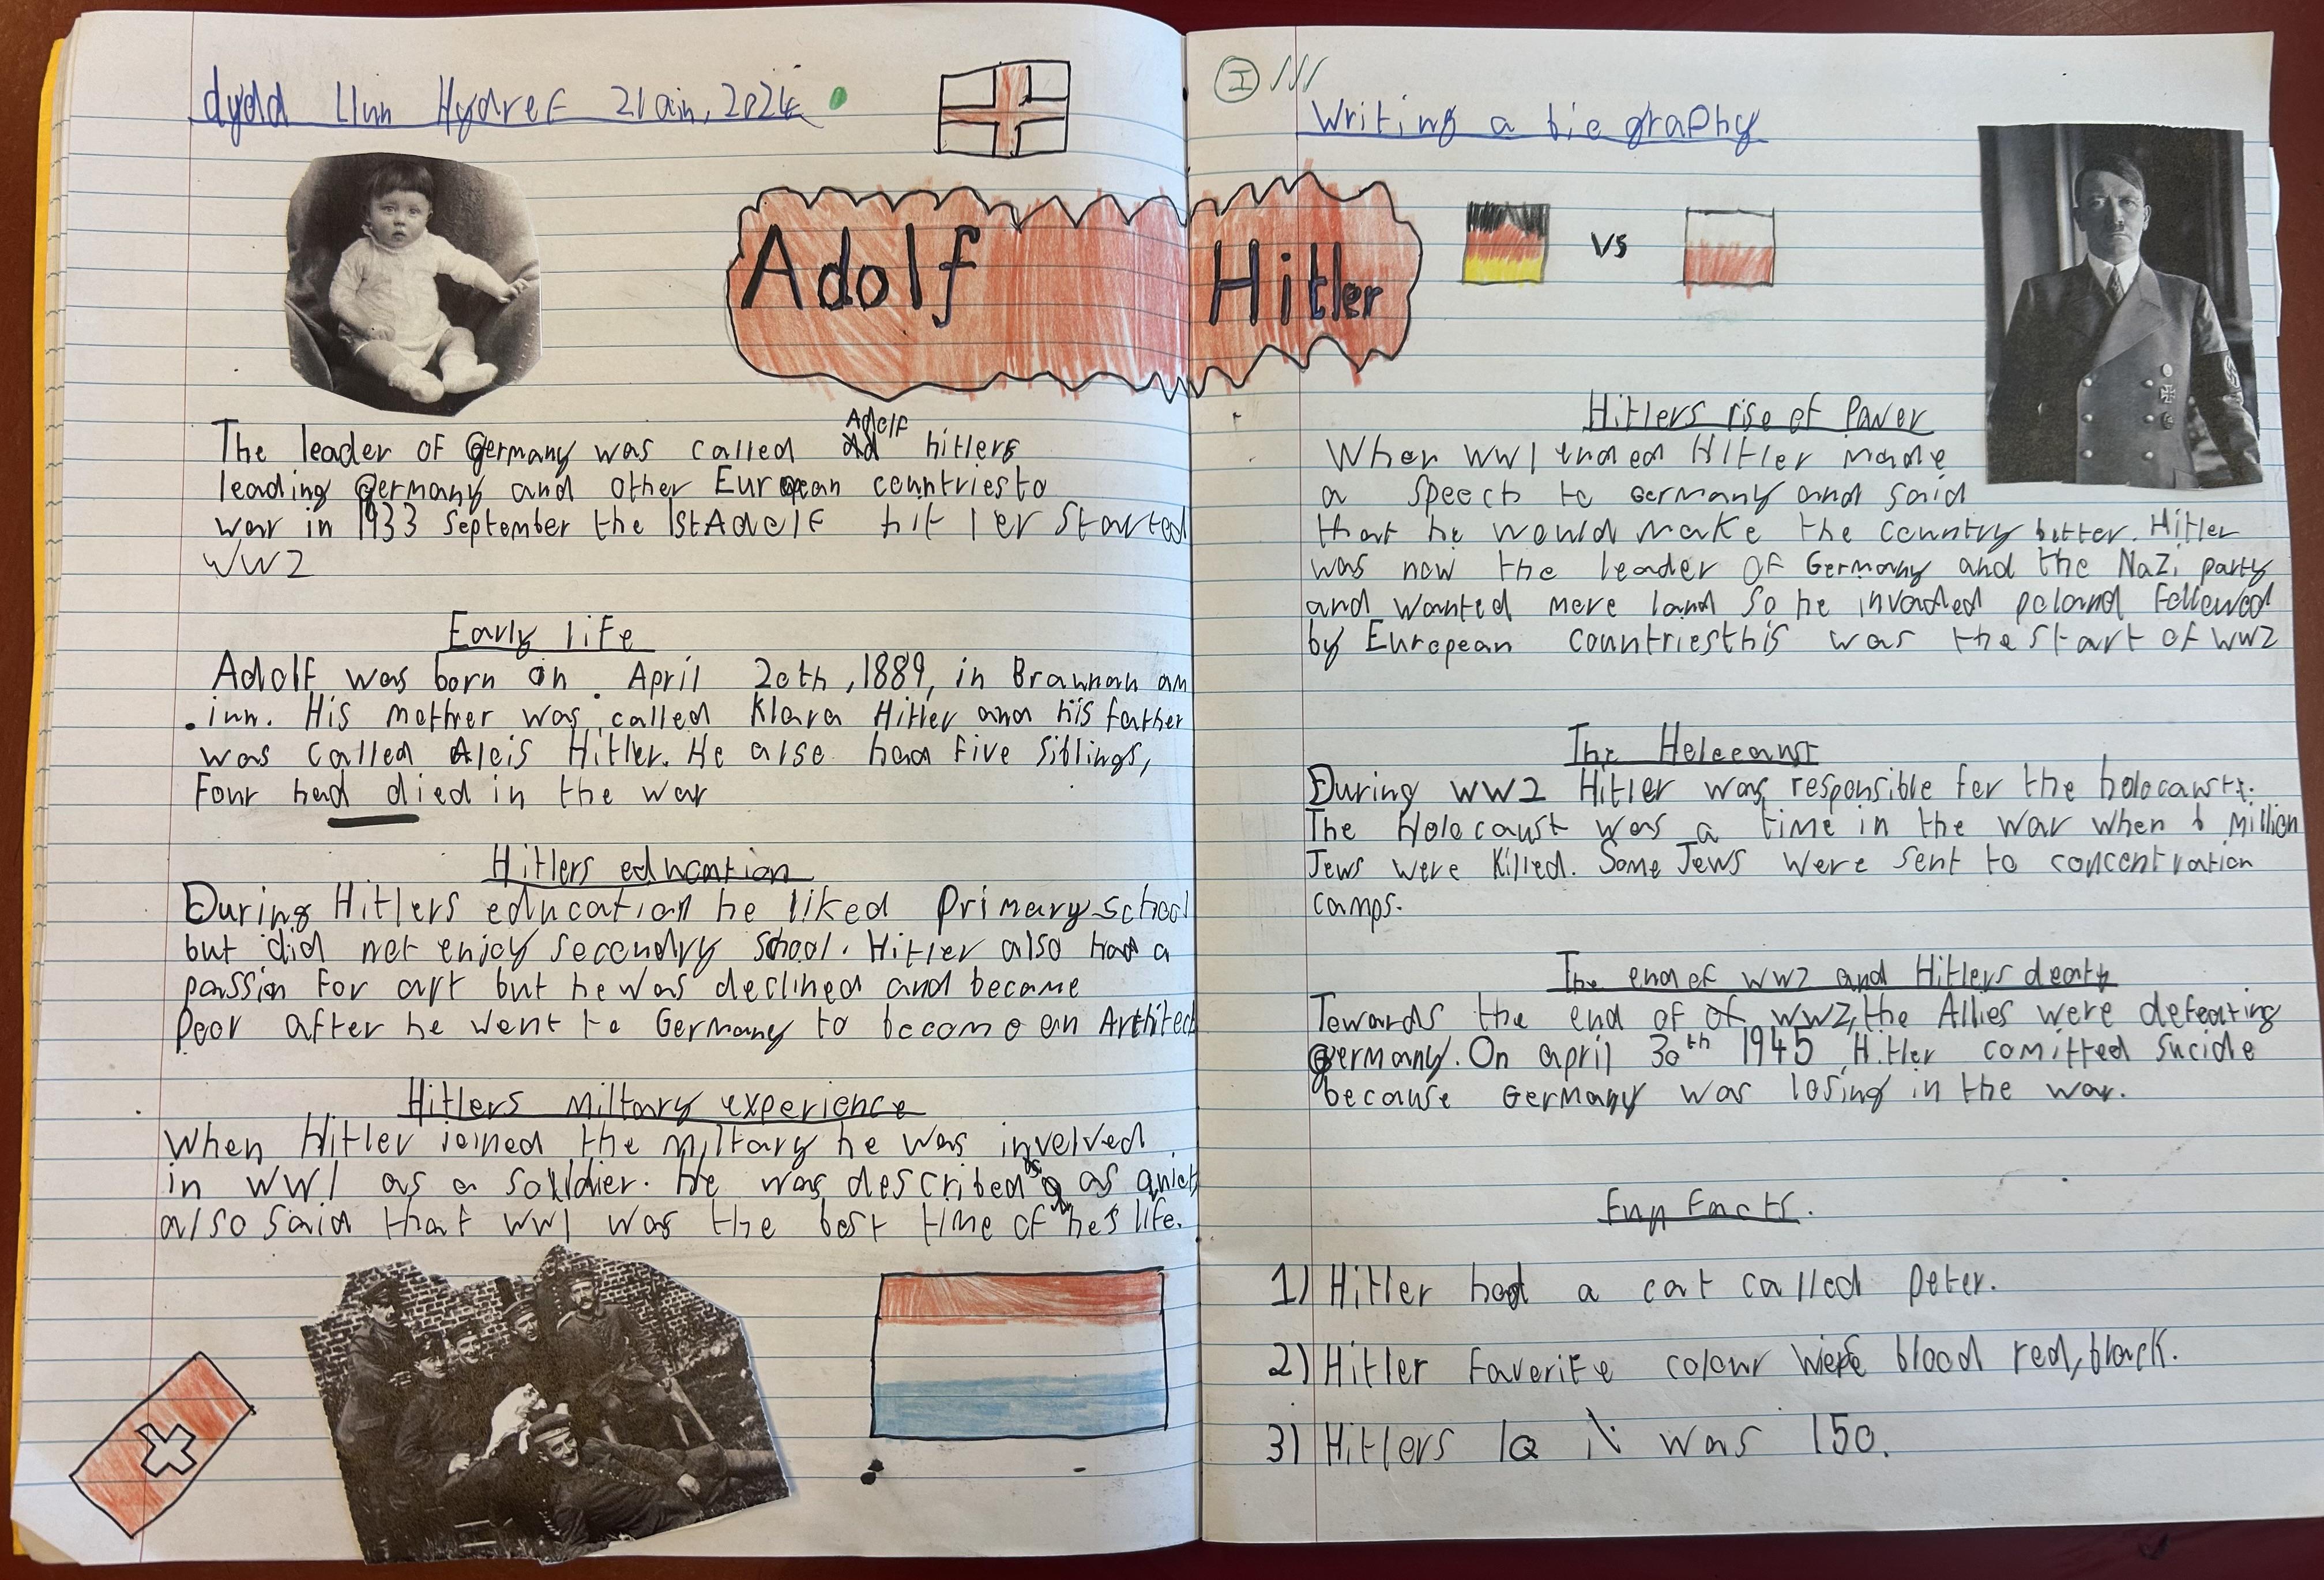 dydd Llun Hydref 21ain, 2024
Adolf
The leader of Germany was called Adolf hitlers
leading germany and other European countriesto
war in 1933 September the 1stAdolf hit ler started
WW2
Early life
Adolf was born on April 20th, 1889, in Braunan am
inn. His mother was called Klara Hitler and his father
was called Alois Hitler. He also had five siblings,
Four had died in the war
Hitlers education
During Hitlers education he liked primary school
but did not enjoy secondry school. Hitler also had a
passion for art but he was declined and became
poor after he went to Germany to become an Arthitect
Hitlers miltary experience
When Hitler joined the miltary he was involved
in WW1 as a soldier. He was described as quiet
also said that ww1 was the best time of he's life.
I
Writing a biography
Hitler
VS
Hitlers rise of Power
When WW1 ended Hitler made
a speech to Germany and said
that he would make the country better. Hitler
was now the leader of Germany and the Nazi party
and wanted more land so he invaded poland followed
by European countriesthis was the start of WW2
The Holocaust
During WW2 Hitler was responsible for the holocaust.
The Holocaust was a time in the war when 6 million
Jews were killed. Some Jews were sent to concentration
camps.
The end of WW2 and Hitlers death
Towards the end of of WW2, the Allies were defeating
germany. On april 30th 1945 Hitler comitted sucide
because Germany was losing in the war.
Fun Facts.
1) Hitler had a cat called peter.
2) Hitler faverite colour were blood red, black.
3) Hitlers IQ was 150.